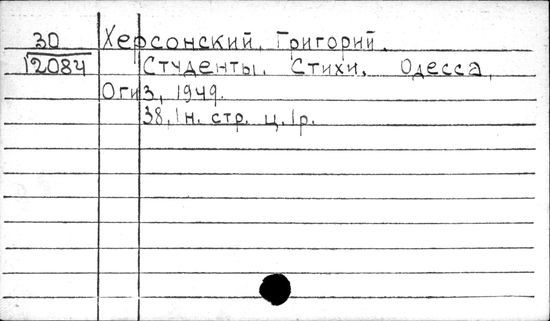 30 Херсонский, Григорий.
12084 Студенты. Стихи. Одесса,
Огиз, 1949.
38, 1н. стр. ц. 1р.